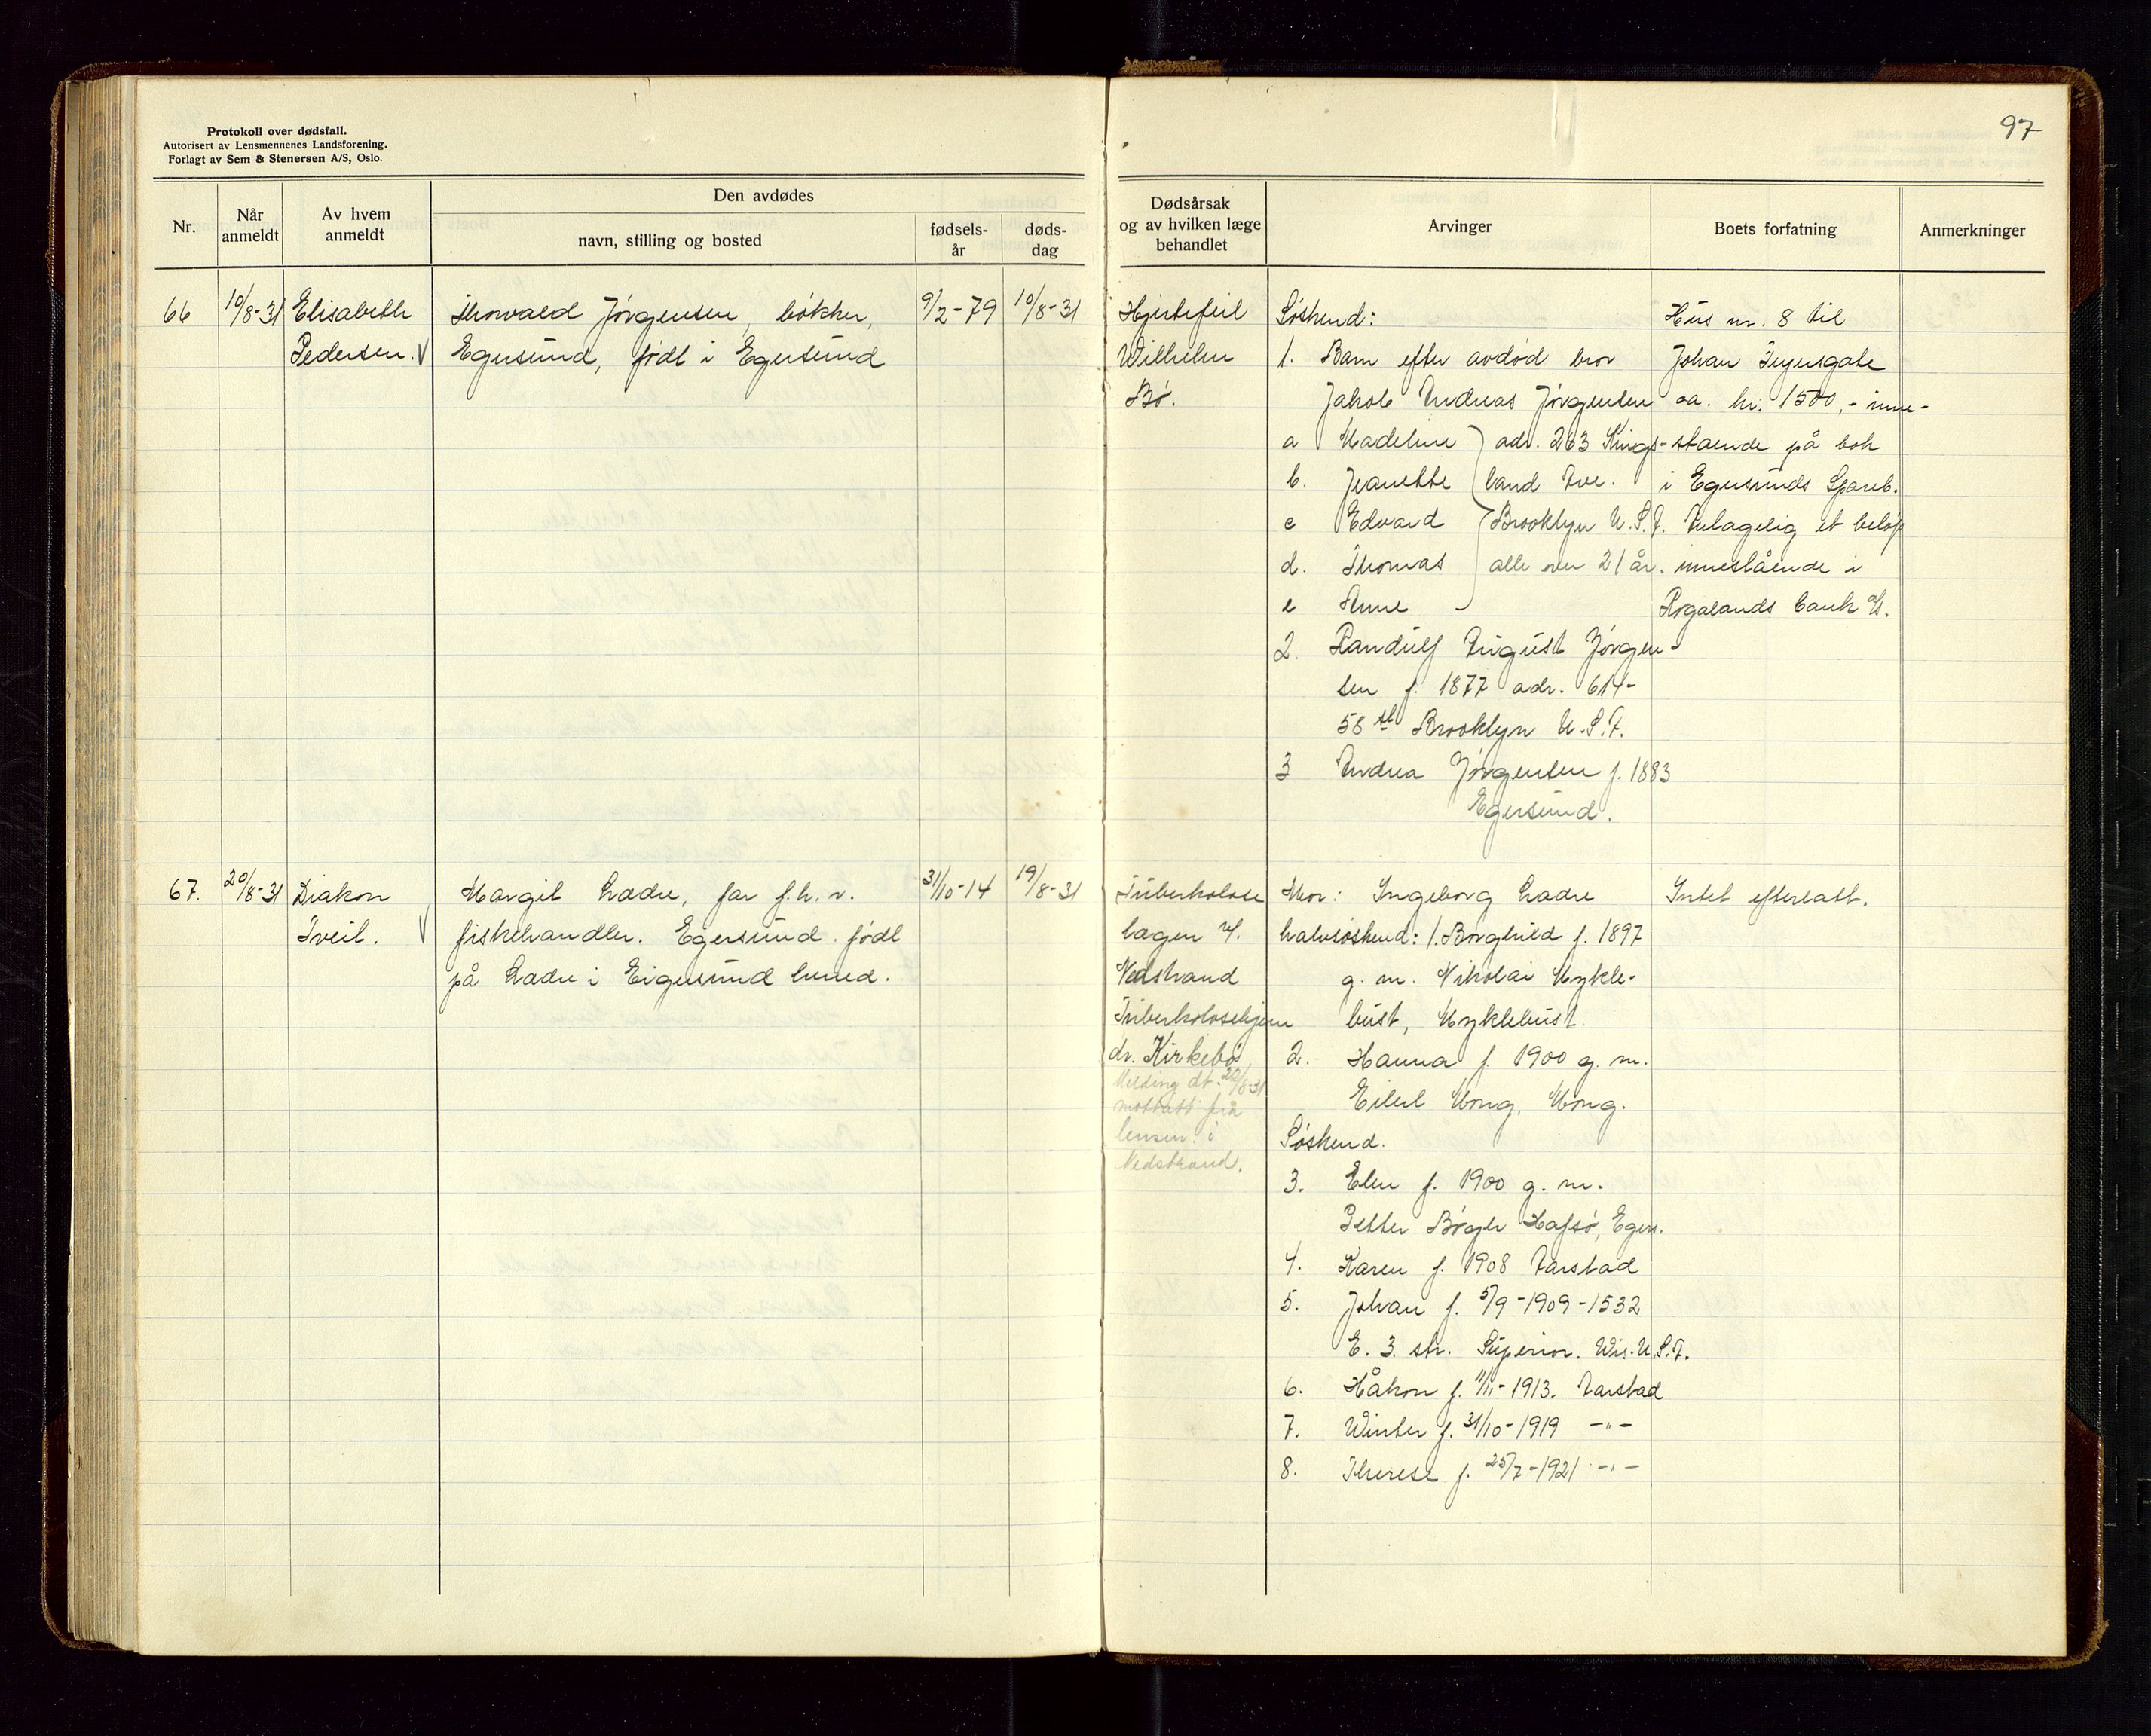 97
Protokoll over dødsfall.
Autorisert av Lensmennenes Landsforening.
Forlagt av Sem & Stenersen A/S, Oslo.
Nr.
Når anmeldt
Av hvem anmeldt
Den avdødes
navn, stilling og bosted
fødselsår
dødsdag
Dødsårsak
og av hvilken læge
behandlet
Arvinger
Boets forfatning
Anmerkninger
66 10/8-31 Elisabeth Thorvald Jørgensen, bøkker, 9/2-79 10/8-31
Pedersen. Egersund, født i Egersund
Hjertefeil
Wilhelm
Bø.
Søskend:
1. Barn efter avdød bror
Jakob Andreas Jørgensen
a Madeline adr. 263 Kings-
b. Jeanette land Ave.
c Edvard Brooklyn U.S.A.
d. Thomas alle over 21 år.
e Anne
2. Randulf August Jørgen-
sen f. 1877 adr. 614-
58 st Brooklyn U.S.A.
3 Andrea Jørgensen f. 1883
Egersund.
Hus nr. 8 til
Johan Feyersgate
ca. kr. 1500,- inne-
staende på bok
i Egersunds Spareb.
Antagelig et beløp
innestående i
Rogalands bank A/S.
67. 20/8-31 Diakon Margit Lædre, far f.h.v. 31/10-14 19/8-31
Tveit. fiskehandler. Egersund. født
på Lædre i Eigersund herred.
Tuberkolose
Nedstrand
Tuberkolosehjem
dr. Kirkebø
Melding dt. 20/8-31
mottatt fra
lensm. i
Nedstrand.
Mor: Ingeborg Lædre
halvsøskend: 1. Borghild f. 1897
g. m. Nikolai Mykle-
bust, Myklebust.
2. Hanna f. 1900 g. m.
Eilert Mong, Mong.
Søskend.
3. Elen f. 1900 g. m.
Petter Bøgh Hafsø, Egers.
4. Karen f. 1908 Aarstad
5. Johan f. 5/9-1909-1532
E. 3. str. Superior. Wis. U.S.A.
6. Håkon f. 11/11-1913. Aarstad
7. Winter f. 31/10-1919 -"-
8. Therese f. 25/7-1921 -"-
Intet efterlatt.